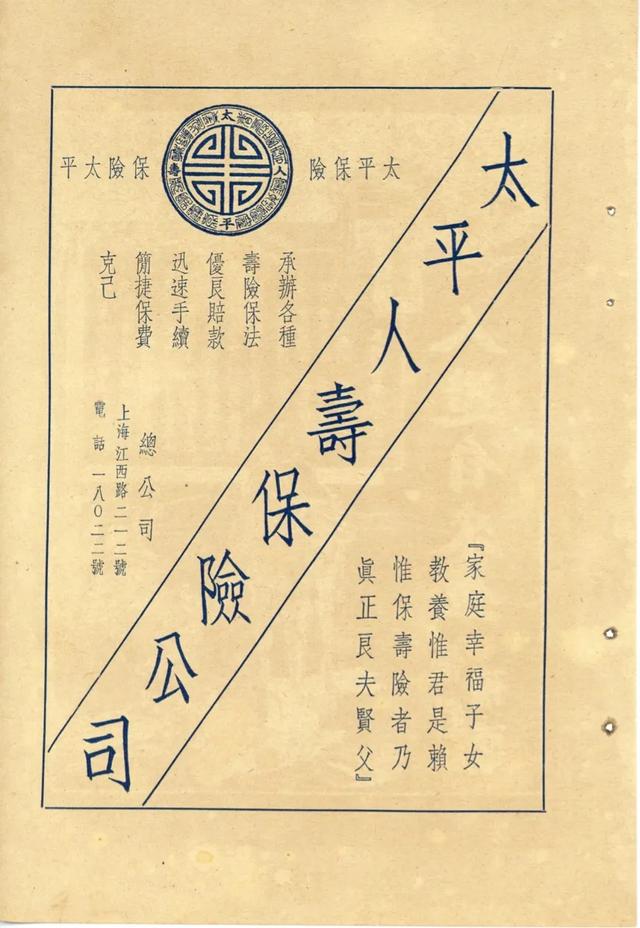 太平人壽保險公司
太平保險
保險太平
太人平壽
承辦各種
壽險保法
優良賠款
迅速手續
簡捷保費
克己
總公司
上海江西路二一二號
電話一八〇二二號
『家庭幸福子女
教養惟君是賴
惟保壽險者乃
眞正良夫賢父』